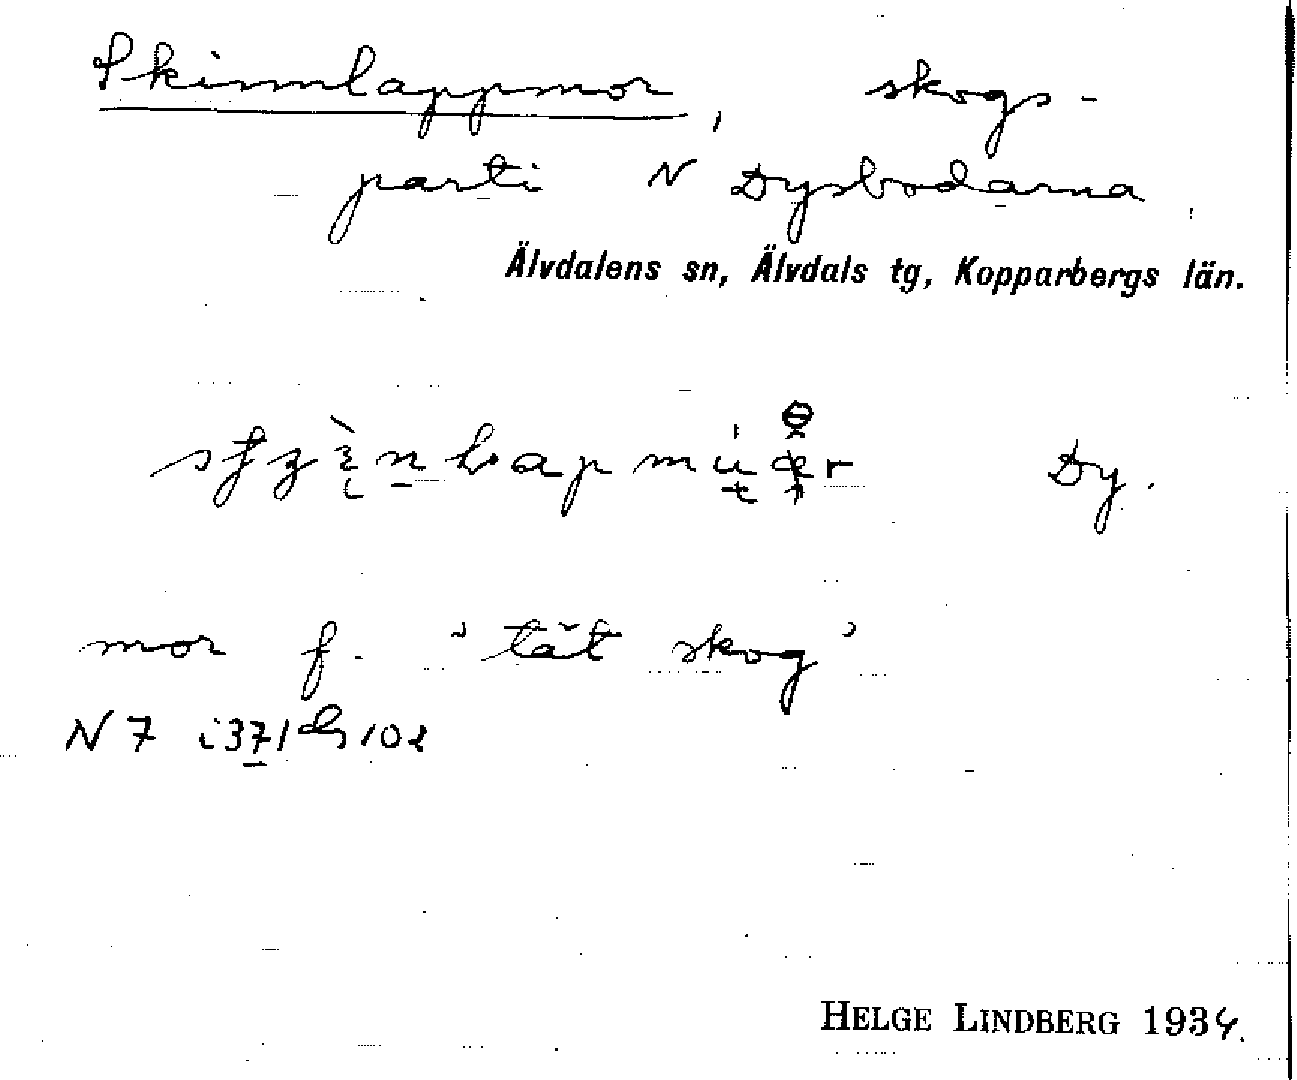 Skinnlappmor, skogs-
parti N Dysbodarna
Älvdalens sn, Älvdals tg, Kopparbergs län.
Dy.
mor f. 'tät skog'
N 7
HELGE LINDBERG 1934.